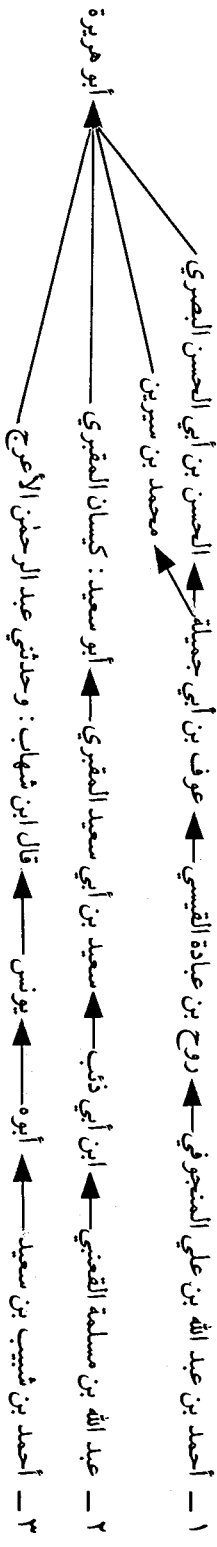 ١ — أحمد بن عبد الله بن علي المنجوفي ← روح بن عبادة القيسي ← عوف بن أبي جميلة ← الحسن بن أبي الحسن البصري
محمد بن سيرين
٢ — عبد الله بن مسلمة القعنبي ← ابن أبي ذئب ← سعيد بن أبي سعيد المقبري ← أبو سعيد : كيسان المقبري
٣ — أحمد بن شبيب بن سعيد ← أبوه ← يونس ← قال ابن شهاب : وحدثني عبد الرحمٰن الأعرج
أبو هريرة